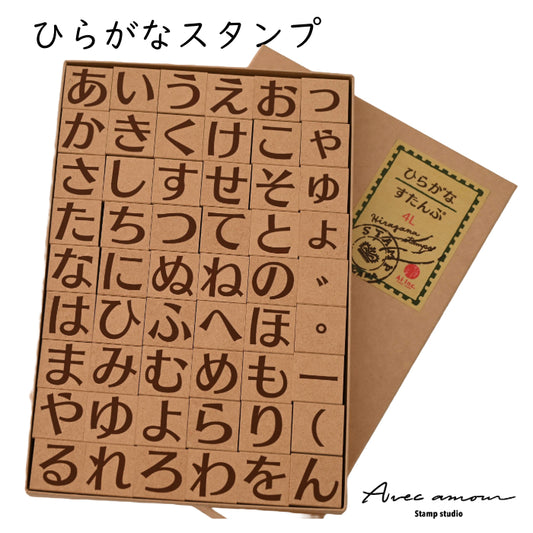 ひらがなスタンプ
あいうえおっ
かきくけこゃ
さしすせそゅ
たちつてとょ
なにぬねの゛
はひふへほ゜
まみむめもー
やゆよらり(
るれろわをん
ひらがな
すたんぷ
4L
Hiragana Stamps
Avec amour
Stamp studio